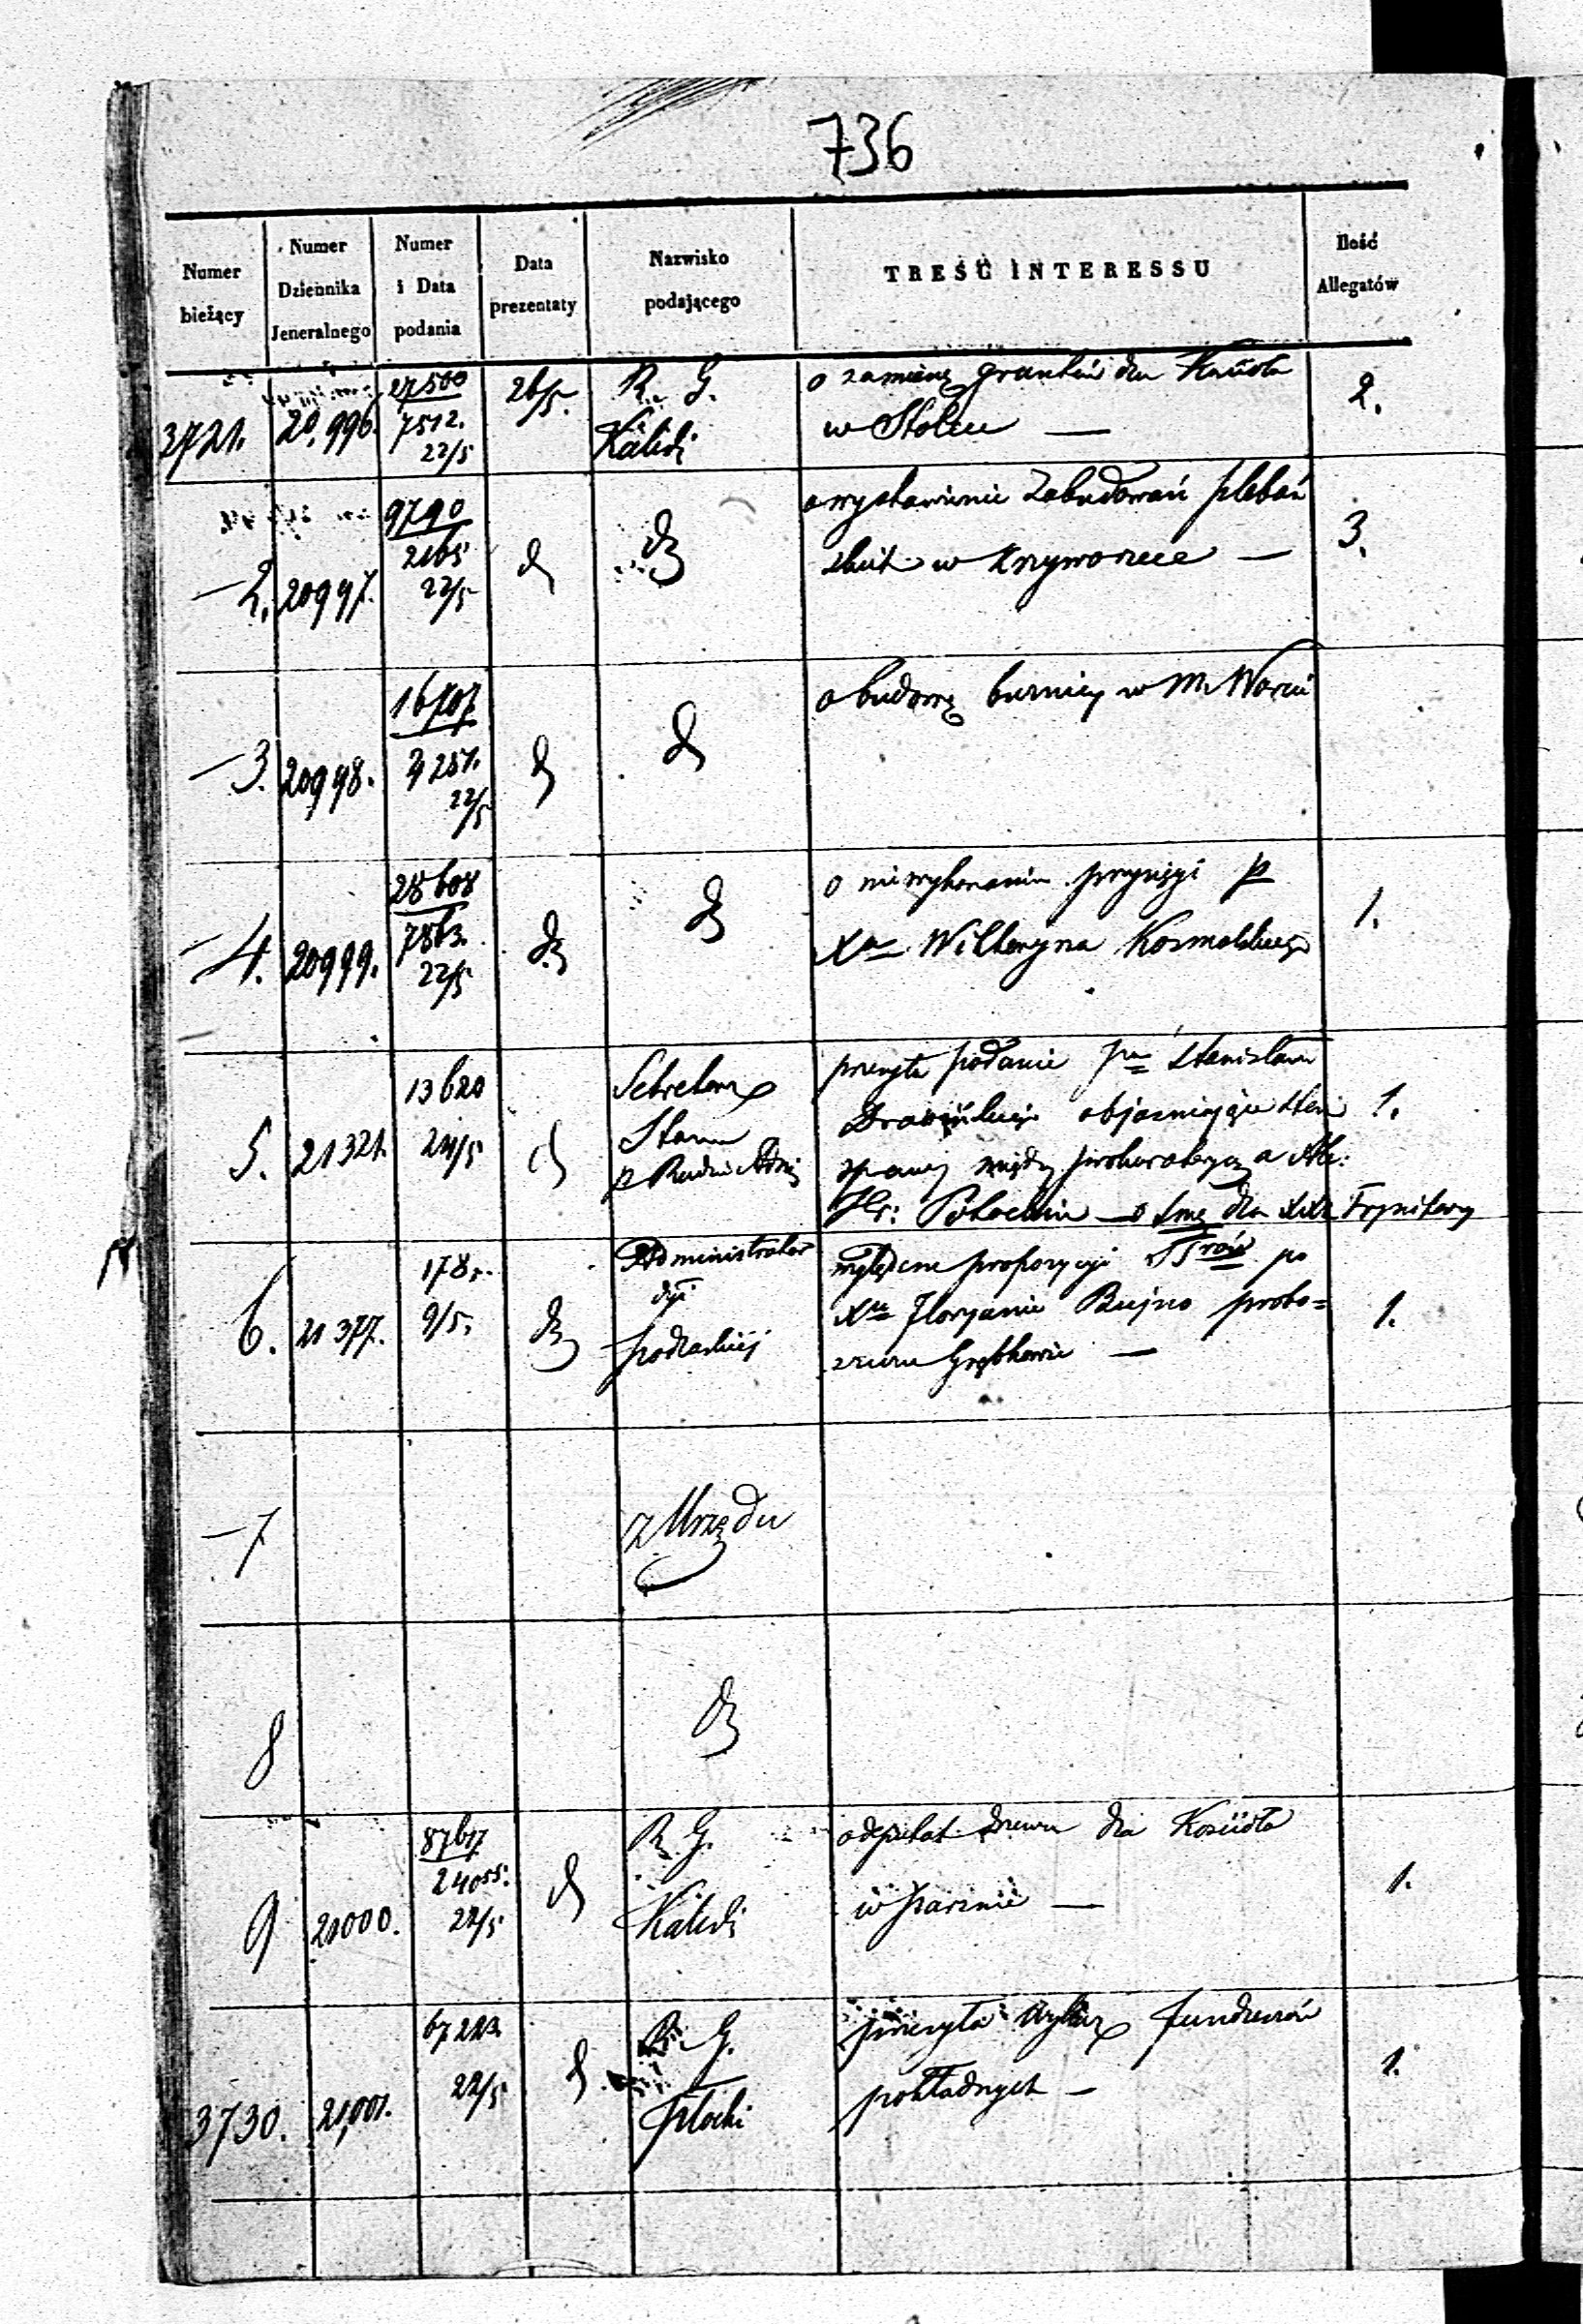 736
Numer bieżący
Numer Dziennika Jeneralnego
Numer i Data podania
Data prezentaty
Nazwisko podającego
TREŚĆ INTERESSU
Ilość Allegatów
3721. 20,996. 27500 7512. 22/5 26/5. R. G. Kaliski
o zamianę gruntów dla Kościoła
w Stolcu —
2.
2. 20997. 9790 2165 22/5 d
o wystawienie zabudowań pleban
w Krzyworzece —
3.
3. 20998. 16707 22/5 d d
o budowę w M. Warcie
4. 20999. 28608 7863. 22/5 d d
o niewykonaniu przysięgi p
Xa Wilhelma Kosmalskiego
1.
5. 21321. 13620 24/5 d
Sekretarz
Stanu
przesyła podanie pna Stanisława
objaśniające
między a Ale:
Hr: Potockim — dla
1.
6. 21377. 178. 9/5. d
Administrator
dyi
podlaskiej
względem propozycyi po
Xu Floryanie Bujno probo=
szczu Grębkowie —
1.
7 z Urzędu
8 d
9 21000. 87617 24055. 22/5 d
R. G.
Kaliski
o deputat drzewa dla Kościoła
w Parznie —
1.
3730. 21,001. 67213. 22/5 d
R. G.
Płocki
przesyła wykaz funduszów
pokładnych —
1.